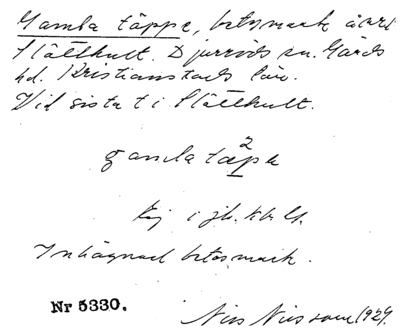 Gamla täppe, betesmark å
Slätthult. Djurröds sn. Gärds
hd. Kristianstads län.
Vid sista t i Slätthult.
gamla täpe
2
Ej i jb. kb. ls.
Inhägnad betesmark.
Nr 5330.
Nils Nilsson 1929.